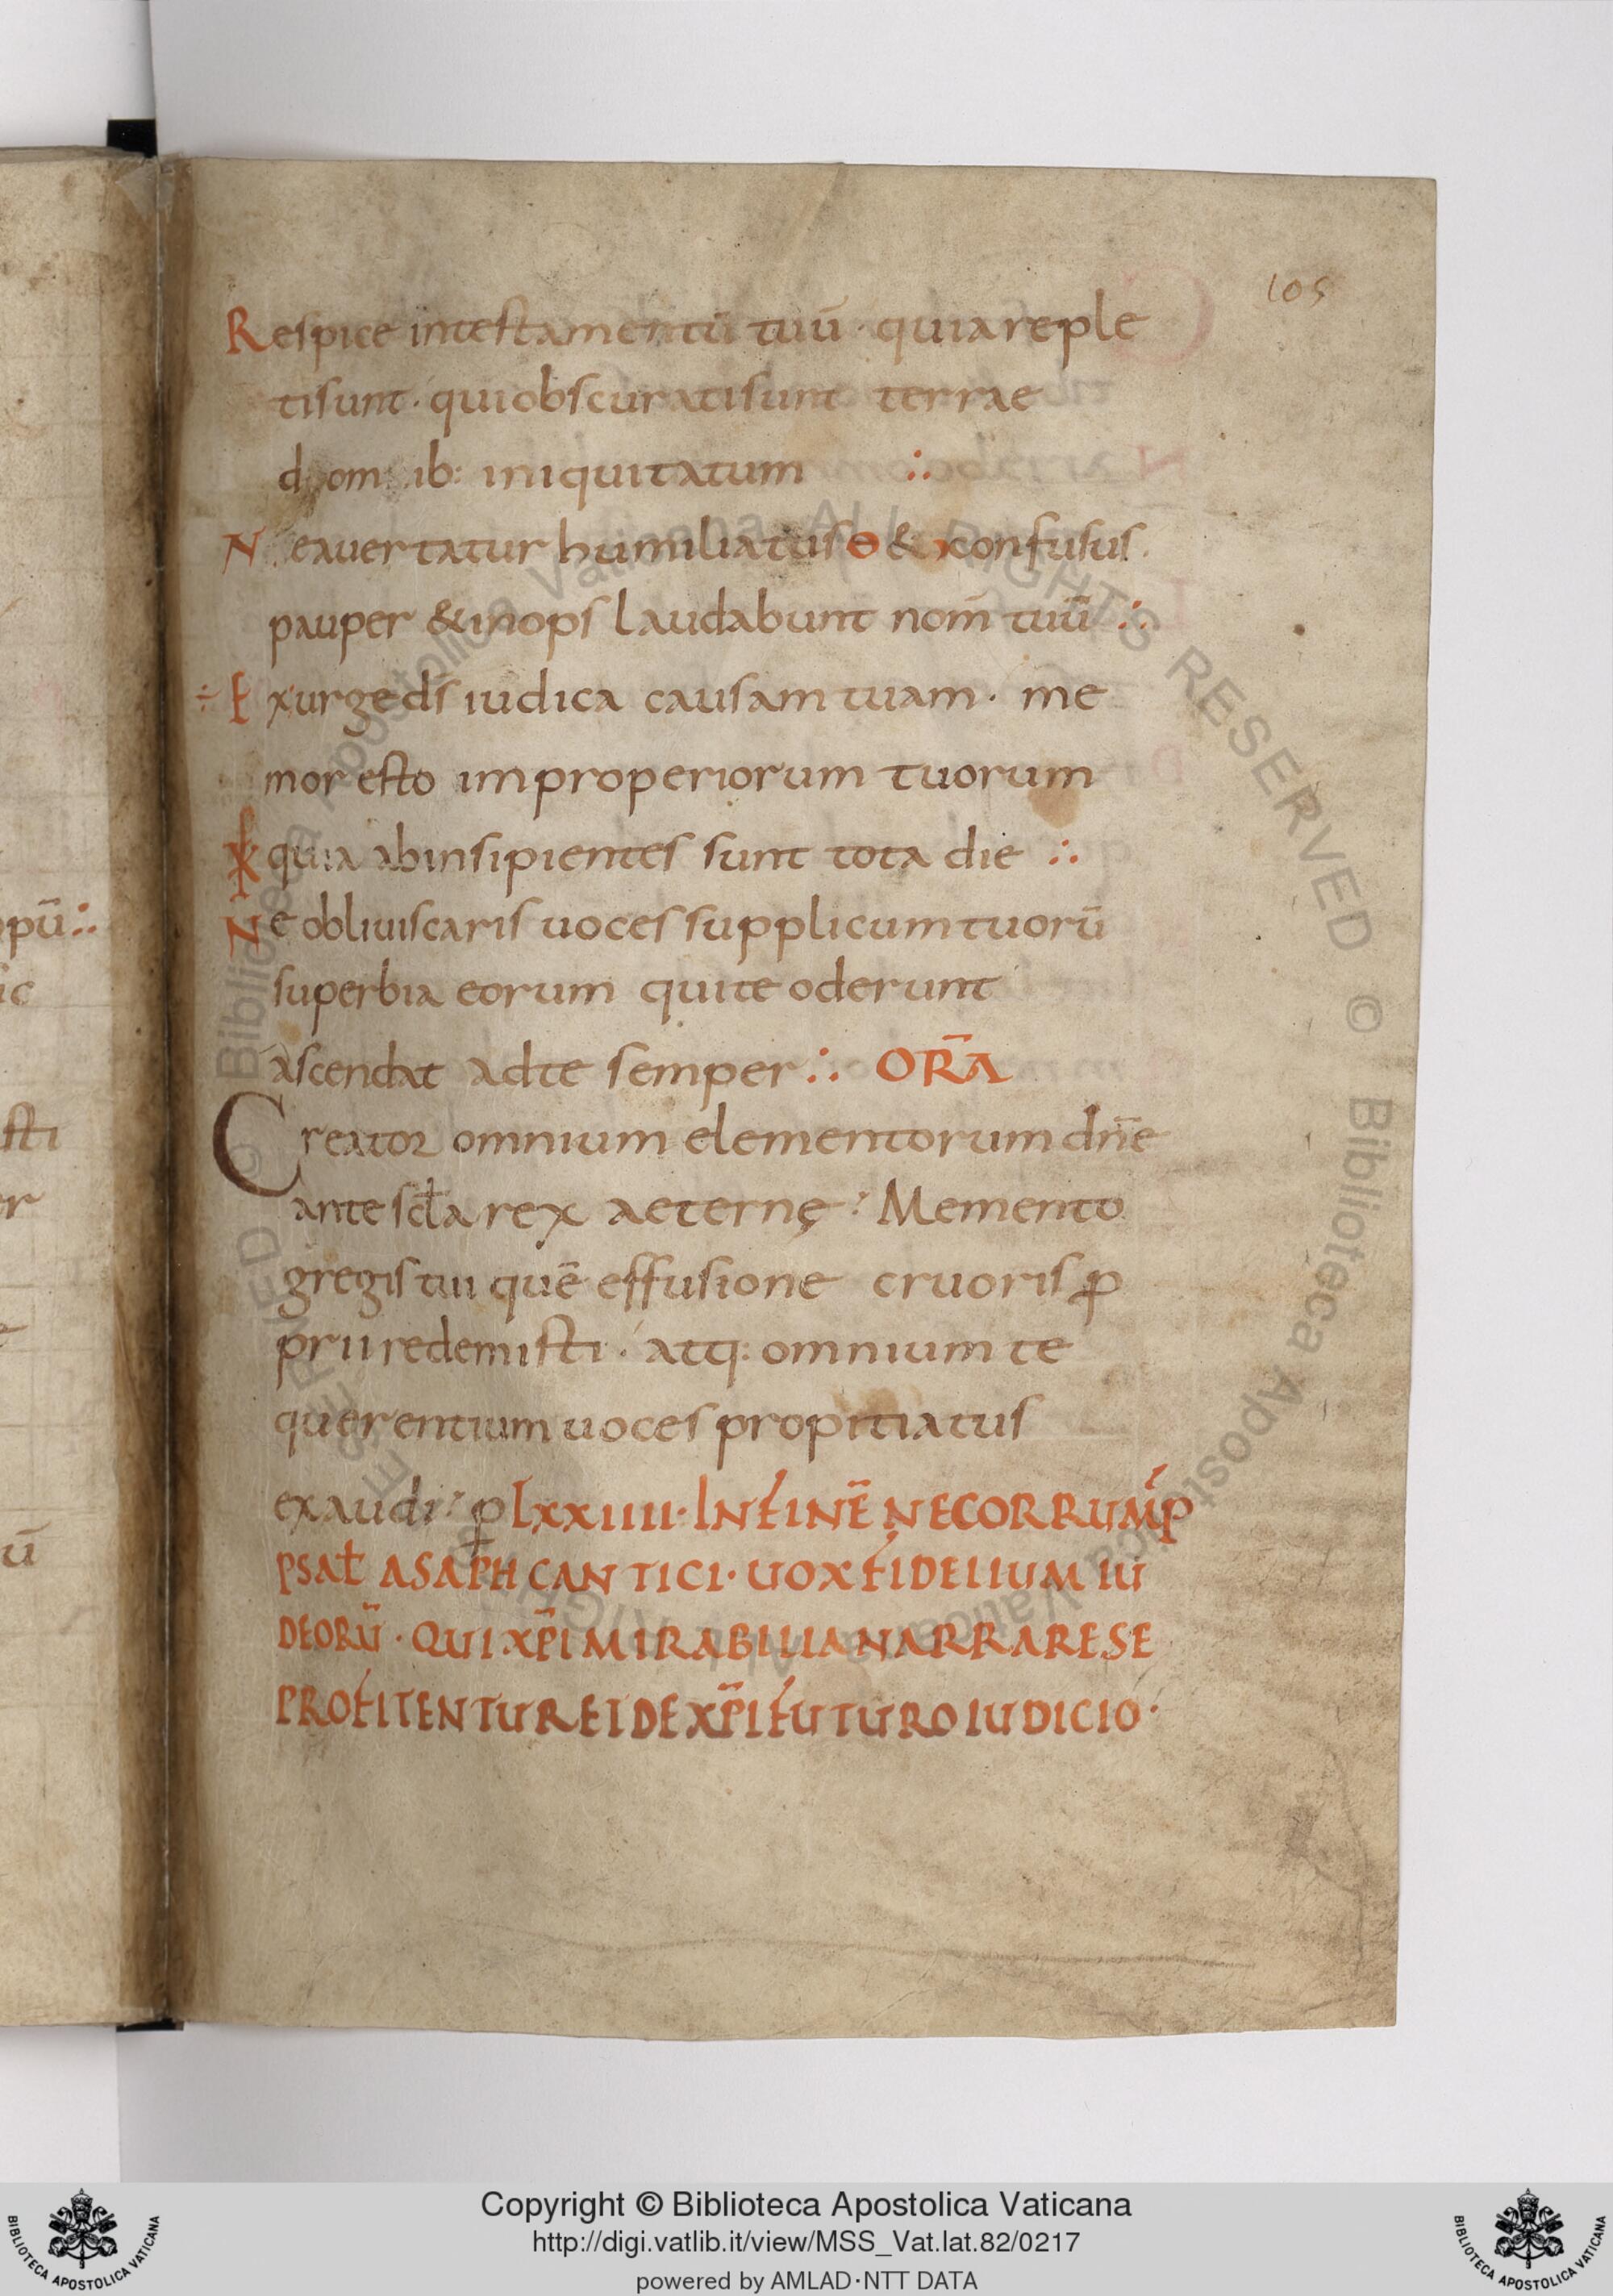 105
Respice intestamentū tuū · quiareple
tisunt · quiobscuratisunt terrae
domib: iniquitatum ∴
Neauertatur humiliatus & confusus
pauper & inops laudabunt nom̄ tuū ∴
÷ Exurge ds̄ iudica causam tuam · me
mor esto improperiorum tuorum
quia abinsipientes sunt tota die ∴
Ne obliuiscaris uoces supplicum tuorū
superbia eorum quite oderunt
ascendat adte semper ∴ OR̄A
Creator omnium elementorum dn̄e
ante sc̄la rex aeternę : Memento
gregis tui quē effusione cruoris ꝓ
prii redemisti · atq: omnium te
querentium uoces propitiatus
exaudi : ꝑ LXXIIII · IN FINĒ NE CORRUMP
PSAL ASAPH CANTICI · UOX FIDELIUM IU
DEORŪ · QUI XP̄I MIRABILIA NARRARE SE
PROFITENTUR ET DE XP̄I FUTURO IUDICIO ·
pū ∴
ic
sti
er
ū
© Biblioteca Apostolica Vaticana ALL RIGHTS RESERVED © Biblioteca Apostolica Vaticana ALL RIGHTS RESERVED
Copyright © Biblioteca Apostolica Vaticana
http://digi.vatlib.it/view/MSS_Vat.lat.82/0217
powered by AMLAD·NTT DATA
BIBLIOTECA APOSTOLICA VATICANA
BIBLIOTECA APOSTOLICA VATICANA